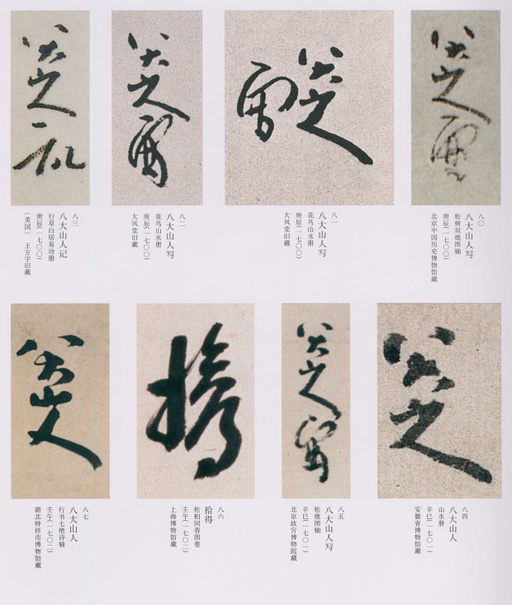 八〇
八大山人写
松树双鹿图轴
庚辰(一七〇〇)
北京中国历史博物馆藏
八一
八大山人写
花鸟山水册
庚辰(一七〇〇)
大风堂旧藏
八二
八大山人写
花鸟山水册
庚辰(一七〇〇)
大风堂旧藏
八三
八大山人记
行草白居易诗册
庚辰(一七〇〇)
(美国) 王方宇旧藏
八四
八大山人
山水册
辛巳(一七〇一)
安徽省博物馆藏
八五
八大山人写
松鹿图轴
辛巳(一七〇一)
北京故宫博物院藏
八六
拾得
松柏同春图卷
壬午(一七〇二)
上海博物馆藏
八七
八大山人
行书七绝诗轴
壬午(一七〇二)
湖北钟祥市博物馆藏